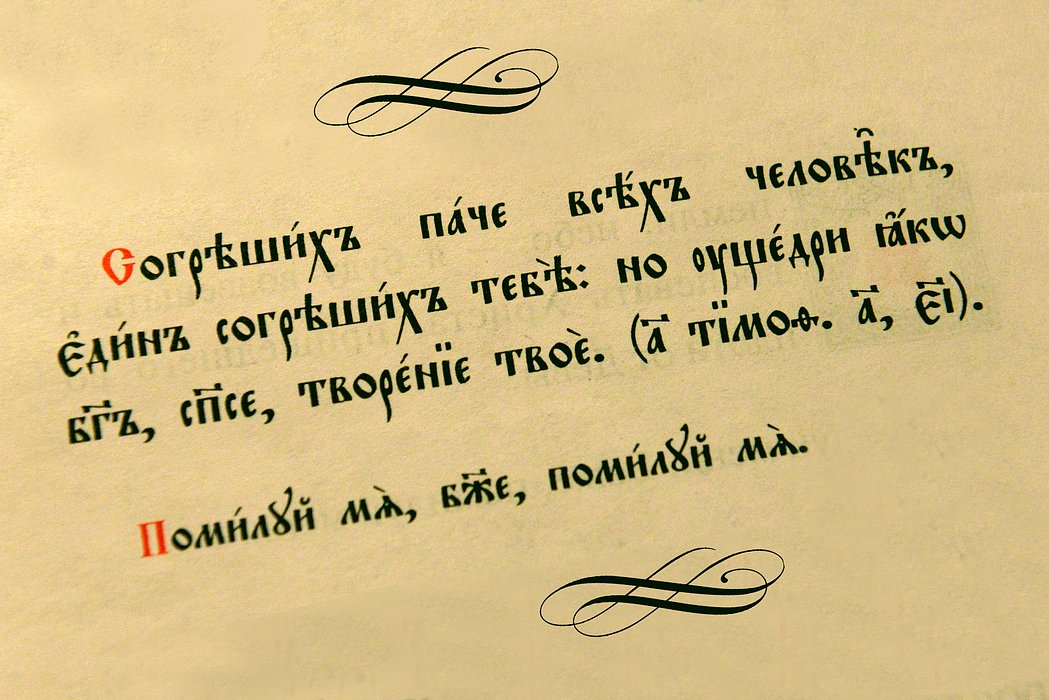 Согрѣши́хъ па́че всѣ́хъ человѣ̑къ,
є҆ди́нъ согрѣши́хъ тебѣ̀: но ᲂу҆ще́дри ꙗ҆́кѡ
бг҃ъ, сп҃се, творе́нїе твоѐ. (а҃ тїмоѳ. а҃, є҃і).
Поми́лꙋй мѧ̀, бж҃е, поми́лꙋй мѧ̀.